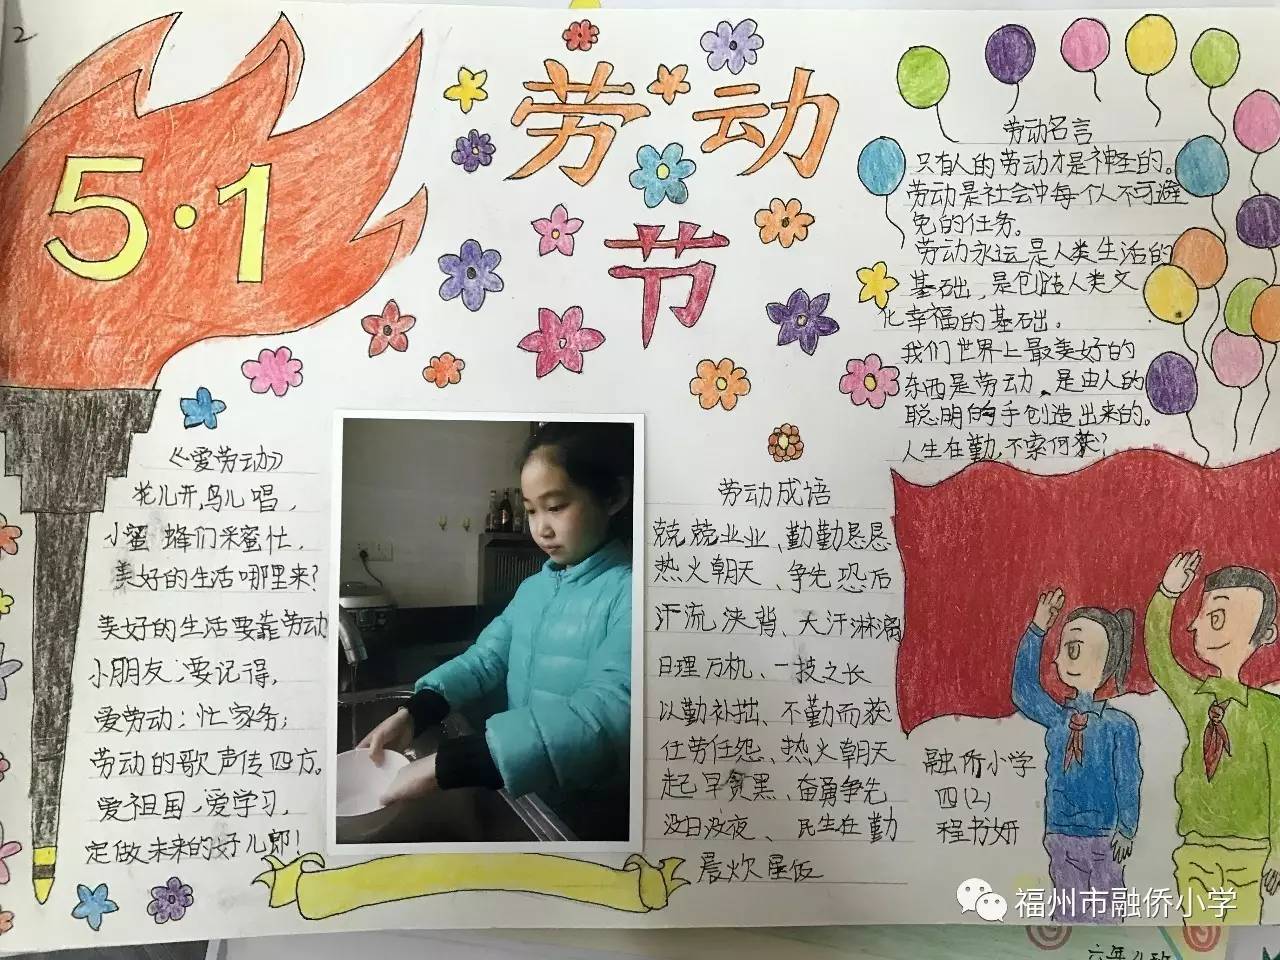 2
5·1
劳动
节
《爱劳动》
花儿开,鸟儿唱,
小蜜蜂们采蜜忙.
美好的生活哪里来?
美好的生活要靠劳动
小朋友,要记得,
爱劳动;忙家务;
劳动的歌声传四方。
爱祖国,爱学习,
定做未来的好儿郎!
劳动成语
兢兢业业、勤勤恳恳
热火朝天、争先恐后
汗流浃背、大汗淋漓
日理万机、一技之长
以勤补拙、不勤而获
任劳任怨、热火朝天
起早贪黑、奋勇争先
没日没夜、民生在勤
晨炊星饭
劳动名言
只有人的劳动才是神圣的。
劳动是社会中每个人不可避
免的任务。
劳动永远是人类生活的
基础,是创造人类文
化幸福的基础.
我们世界上最美好的
东西是劳动、是由人的
聪明的手创造出来的。
人生在勤,不索何获?
融侨小学
四(2)
程书妍
福州市融侨小学